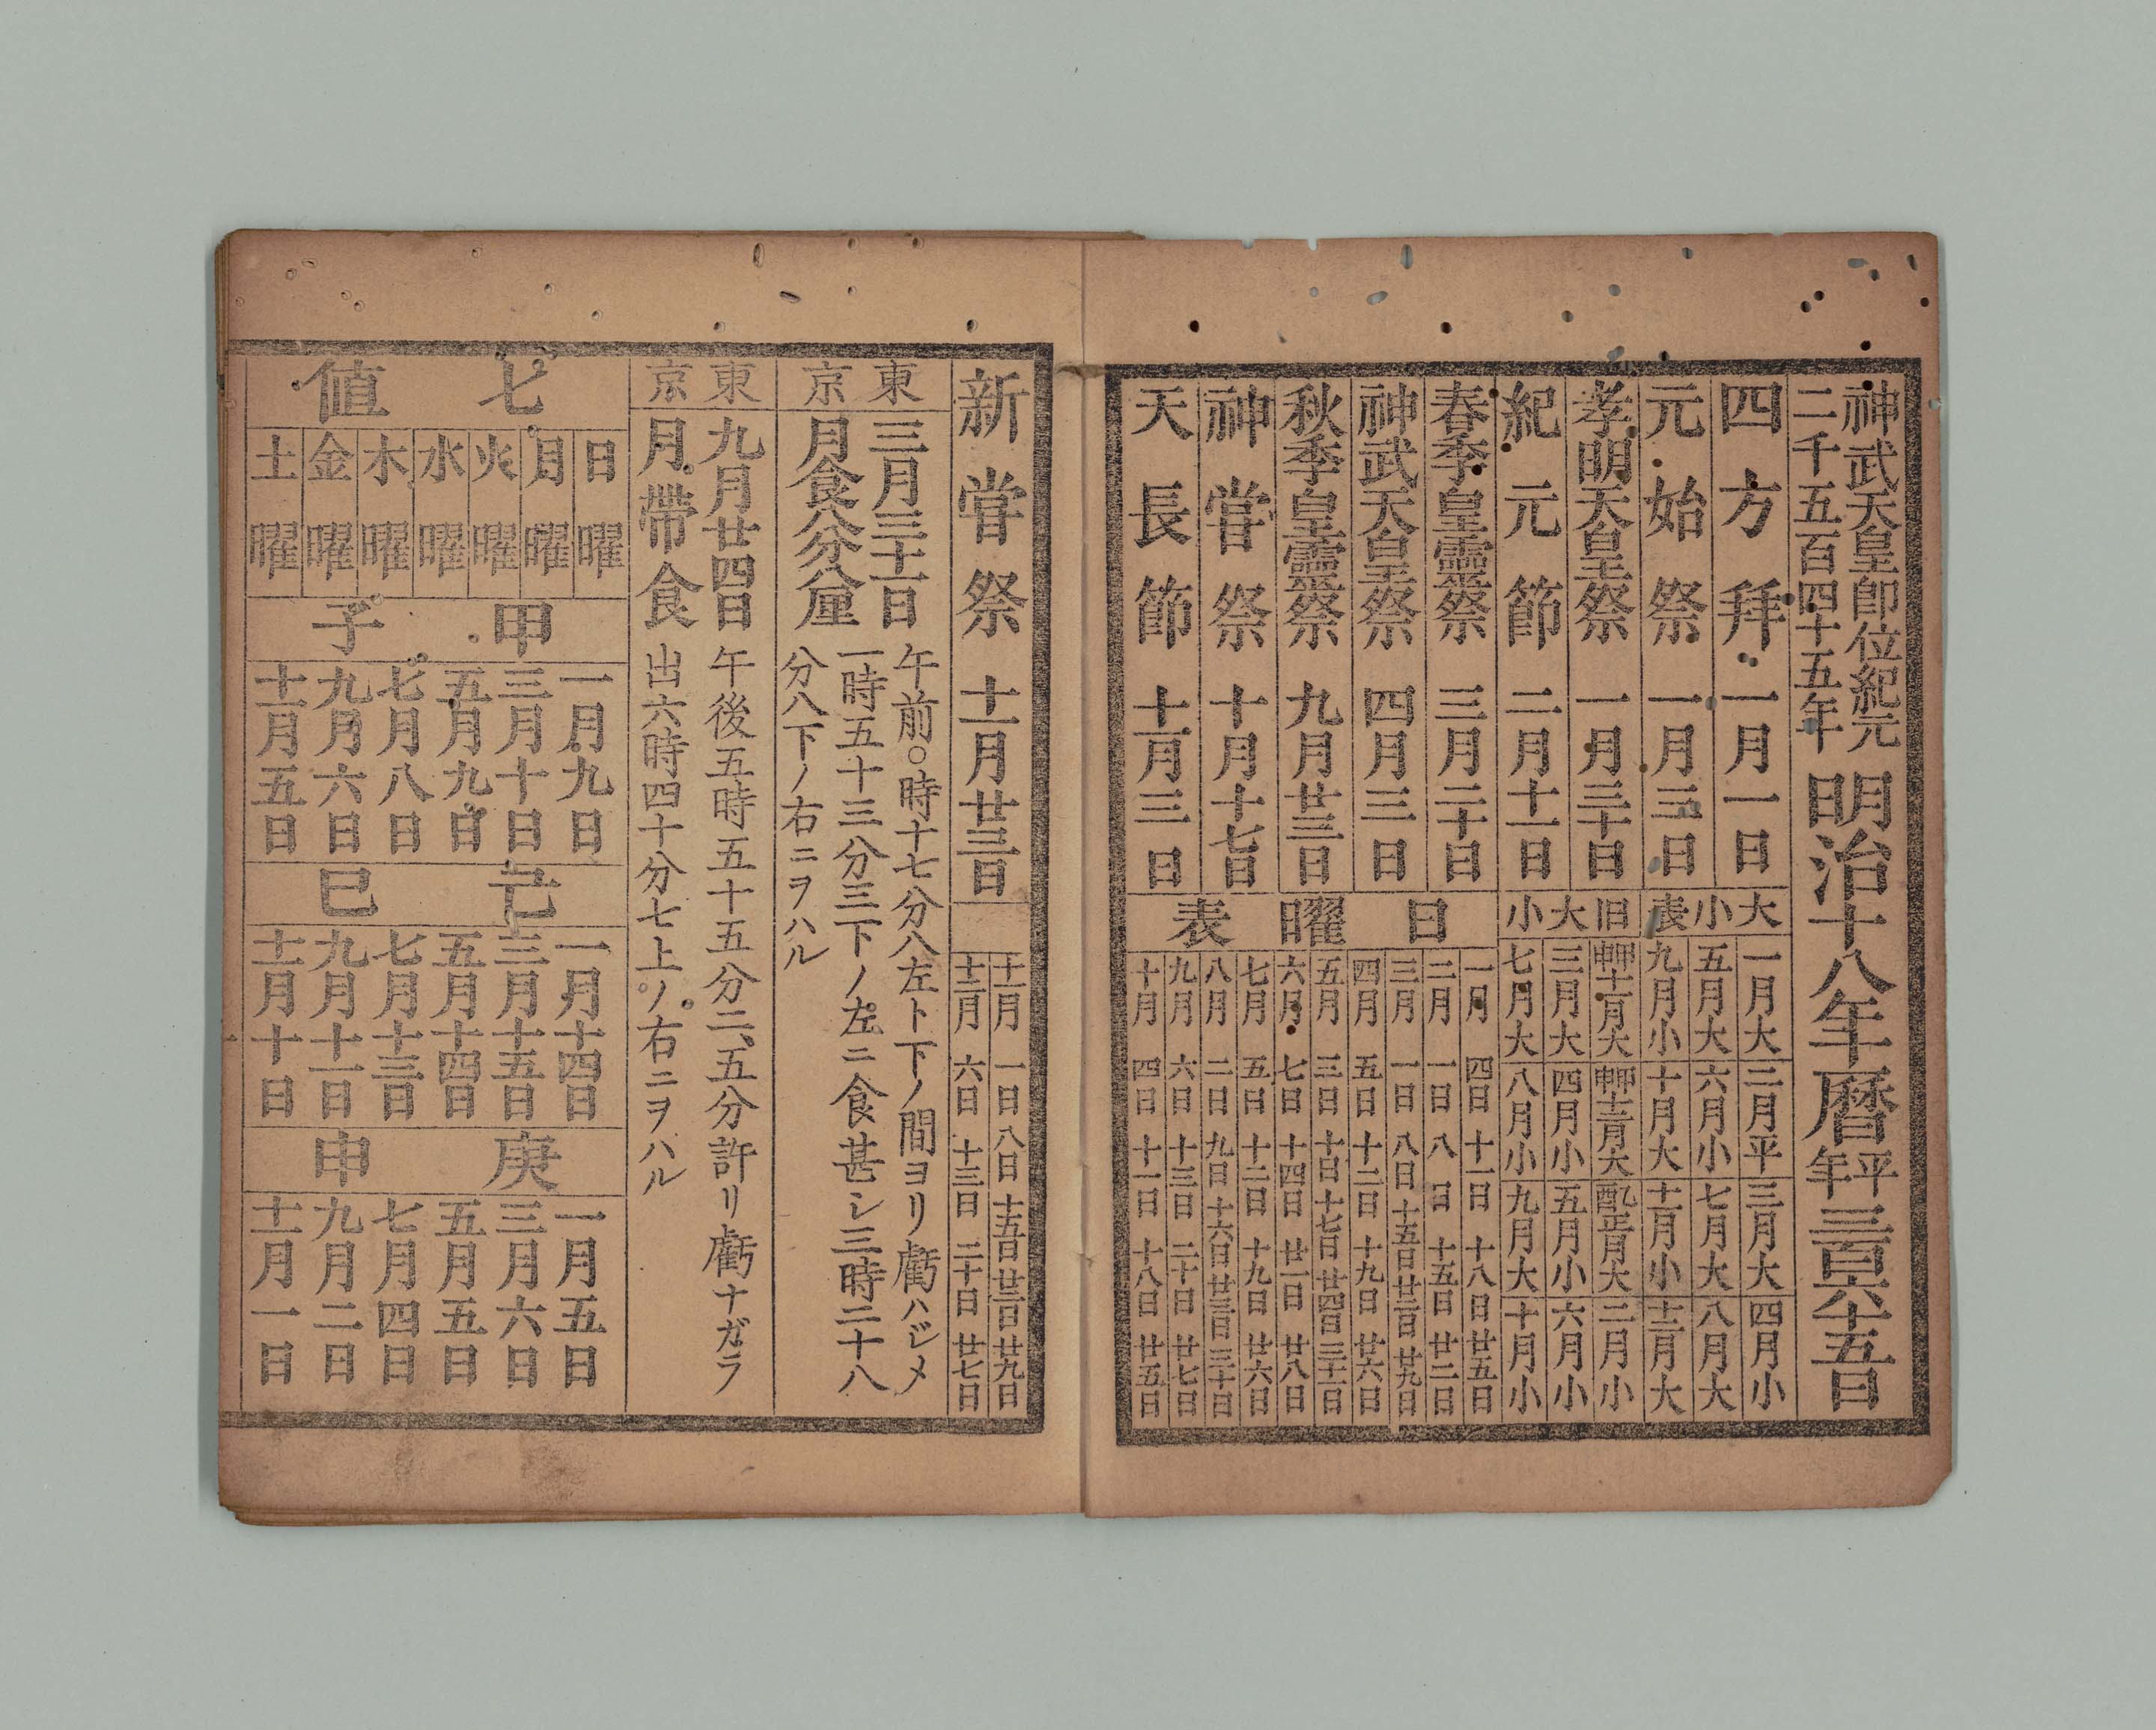 神武天皇即位紀元
二千五百四十五年
明治十八年暦
平年
三百六十五日
四方拜 一月一日
元始祭 一月三日
孝明天皇祭 一月三十日
紀元節 二月十一日
春季皇霊祭 三月二十日
神武天皇祭 四月三日
秋季皇霊祭 九月廿三日
神嘗祭 十月十七日
天長節 十一月三日
大小表
一月大 二月平 三月大 四月小
五月大 六月小 七月大 八月大
九月小 十月大 十一月小 十二月大
旧大小
甲申十一月大 甲申十二月大 乙酉正月大 二月小
三月大 四月小 五月小 六月小
七月大 八月小 九月大 十月小
日曜表
一月 四日 十一日 十八日 廿五日
二月 一日 八日 十五日 廿二日
三月 一日 八日 十五日 廿二日 廿九日
四月 五日 十二日 十九日 廿六日
五月 三日 十日 十七日 廿四日 三十一日
六月 七日 十四日 廿一日 廿八日
七月 五日 十二日 十九日 廿六日
八月 二日 九日 十六日 廿三日 三十日
九月 六日 十三日 二十日 廿七日
十月 四日 十一日 十八日 廿五日
新嘗祭 十一月廿三日
十一月 一日 八日 十五日 廿二日 廿九日
十二月 六日 十三日 二十日 廿七日
東京
三月三十一日
月食八分八厘
午前○時十七分八左ト下ノ間ヨリ虧ハジメ
一時五十三分三下ノ左ニ食甚シ三時二十八
分八下ノ右ニヲハル
東京
九月廿四日
月帶食
午後五時五十五分二、五分許リ虧ナガラ
出六時四十分七上ノ右ニヲハル
七値
日曜 月曜 火曜 水曜 木曜 金曜 土曜
甲子
一月九日
三月十日
五月九日
七月八日
九月六日
十一月五日
己巳
一月十四日
三月十五日
五月十四日
七月十三日
九月十一日
十一月十日
庚申
一月五日
三月六日
五月五日
七月四日
九月二日
十一月一日